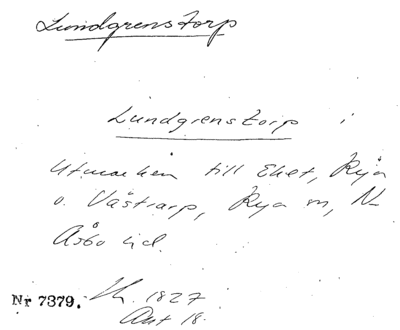 Lundgrenstorp
Lundgrenstorp i
utmarken till Ehet, Rya
o. Västrarp, Rya sn, N
Åsbo hd.
Nr 7379. 1827
Ant 18.